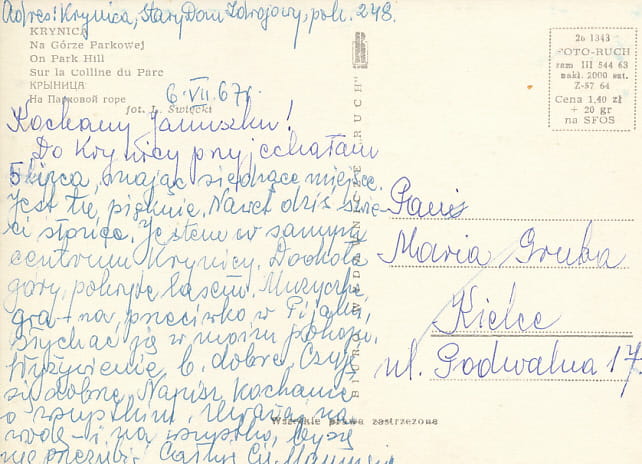 Adres: Krynica, Stary Dom Zdrojowy, pok. 248.
KRYNICA
Na Górze Parkowej
On Park Hill
Sur la Colline du Parc
КРЫНИЦА
На Парковой горе
fot. L. Święcki
26 1343
FOTO-RUCH
zam III 544 63
nakł. 2000 szt.
Z-87 64
Cena 1,40 zł
+ 20 gr
na SFOS
BIURO WYDAWNICZE "RUCH"
6.VII.67r.
Kochany Januszku!
Do Krynicy przyjechałam
5 lipca, mając siedzące miejsce.
Jest tu pięknie. Nawet dziś świe-
ci słońce. Jestem w samym
centrum Krynicy. Dookoła
góry, pokryte lasem. Muzyczka
gra - na przeciwko w Pijalni,
słychać ją w moim pokoju.
Wyżywienie b. dobre. Czuję
się dobrze. Napisz kochanie
o wszystkim. Uważaj na
wodę - i na wszystko, byś się
nie
Pani
Maria Gruba
Kielce
ul. Podwalna 17
Wszelkie prawa zastrzeżone